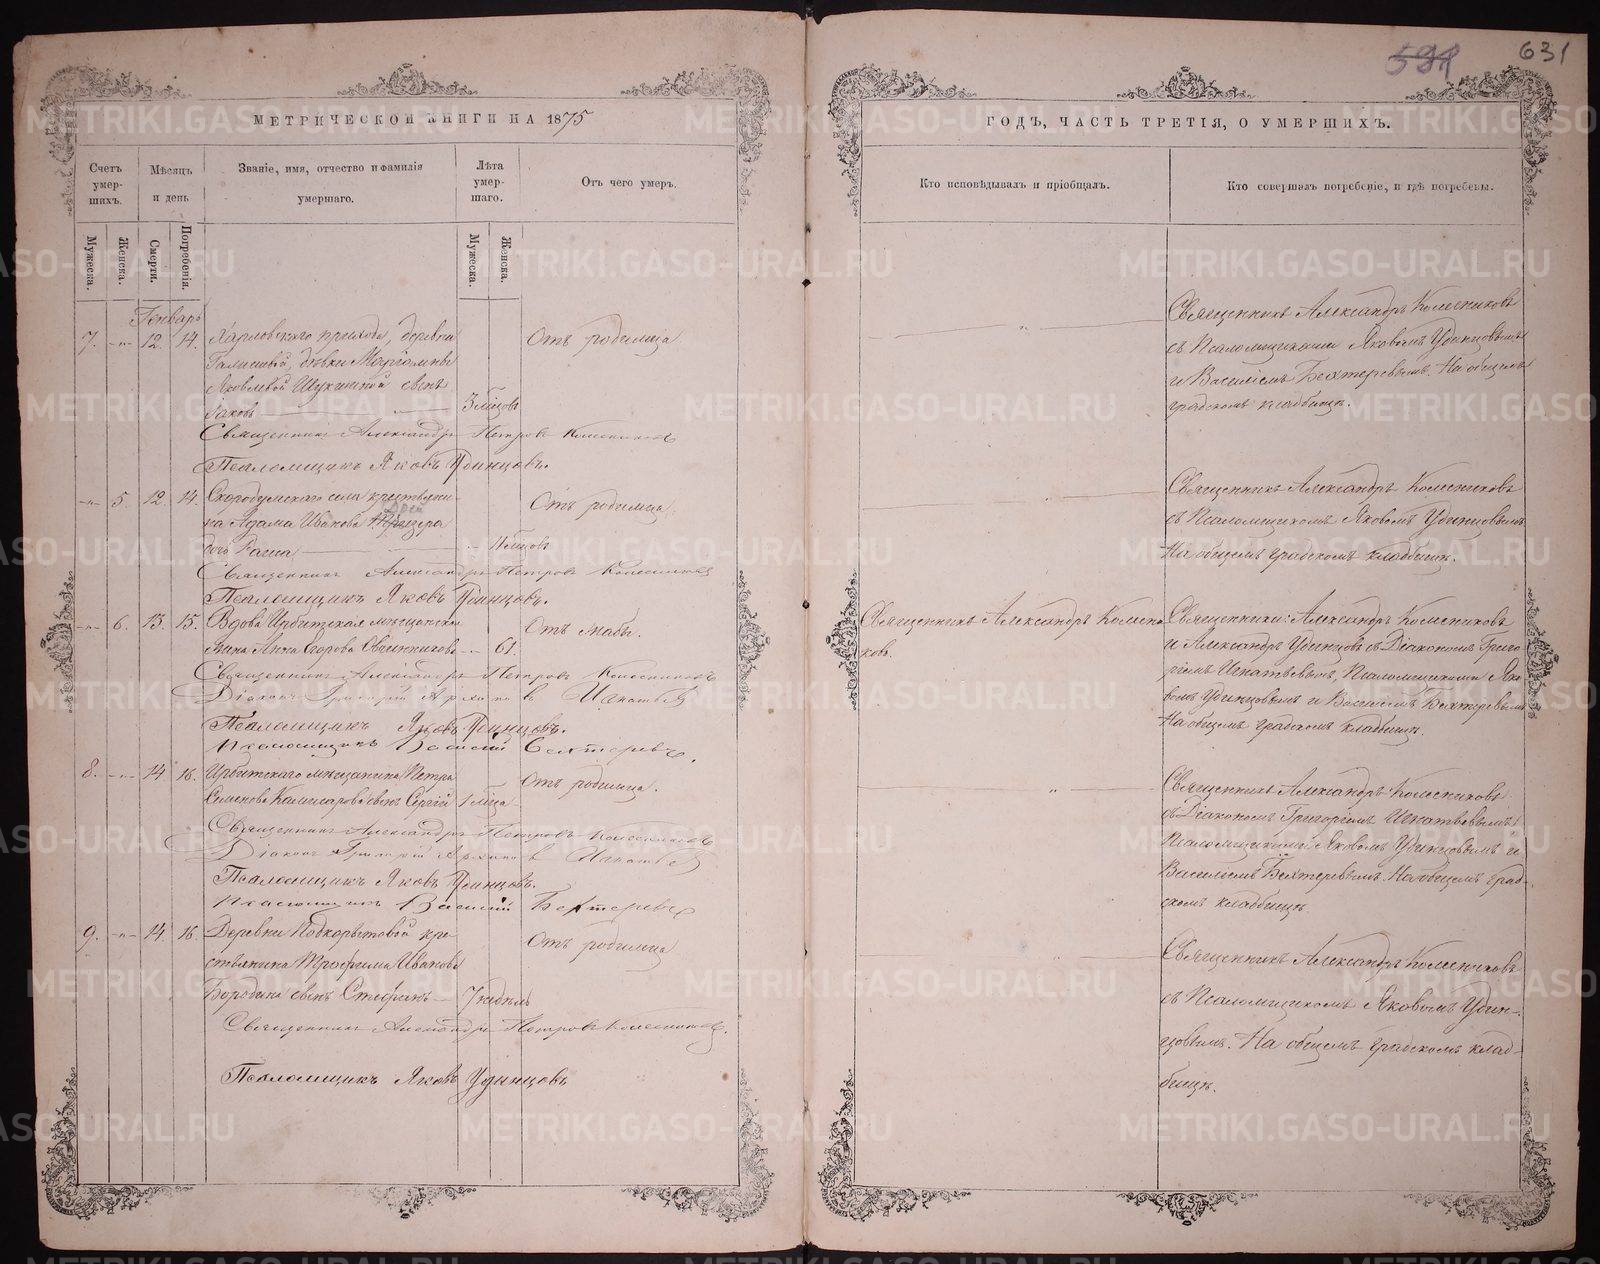 594 631
МЕТРИЧЕСКОЙ КНИГИ НА 1875
ГОДЪ, ЧАСТЬ ТРЕТІЯ, О УМЕРШИХЪ.
Счетъ умер-шихъ.
Мѣсяцъ и день
Званіе, имя, отчество и фамилія умершаго.
Лѣта умер-шаго.
Отъ чего умеръ.
Кто исповѣдывалъ и пріобщалъ.
Кто совершалъ погребеніе, и гдѣ погребены.
Мужеска.
Женска.
Смерти.
Погребенія.
Мужеска.
Женска.
Генварь
7. -„- 12. 14. Харловскаго прихода, деревни
дѣвки
Яковлевой сынъ
Іаковъ 3 м҃цовъ
Отъ родимца
Священникъ Александръ Петровъ Колесниковъ
Псаломщикъ Яковъ Удинцовъ.
Священникъ Александръ Колесниковъ
съ Псаломщиками Яковомъ Удинцовымъ
и Василіемъ Бехтеревымъ. На общемъ
градскомъ кладбищѣ.
-„- 5. 12. 14. Скородумскаго села крестьяни-
на Адама Иванова
дочь
Отъ родимца
Священникъ Александръ Петровъ Колесниковъ
Псаломщикъ Яковъ Удинцовъ.
Священникъ Александръ Колесниковъ
съ Псаломщикомъ Яковомъ Удинцовымъ
На общемъ градскомъ кладбищѣ.
-„- 6. 13. 15. Вдова Ирбитская мѣщанская
жена Анна Егорова Овчинникова 61.
Отъ
Священникъ Александръ Петровъ Колесниковъ
Діаконъ Григорій Архиповъ Игнатьевъ
Псаломщикъ Яковъ Удинцовъ.
Псаломщикъ Василій Бехтеревъ.
Священникъ Александръ Колесни-
ковъ.
Священники: Александръ Колесниковъ
и Александръ Удинцовъ съ Діакономъ Григо-
ріемъ Игнатьевымъ, Псаломщиками Яко-
вомъ Удинцовымъ и Василіемъ Бехтеревымъ
На общемъ градскомъ кладбищѣ.
8. -„- 14. 16. Ирбитскаго мѣщанина Петра
Семенова сынъ Сергій 1 м҃ца
Отъ родимца.
Священникъ Александръ Петровъ Колесниковъ
Діаконъ Григорій Архиповъ Игнатьевъ
Псаломщикъ Яковъ Удинцовъ.
Псаломщикъ Василій Бехтеревъ
Священникъ Александръ Колесниковъ
съ Діакономъ Григоріемъ Игнатьевымъ
Псаломщиками Яковомъ Удинцовымъ и
Василіемъ Бехтеревымъ. На общемъ град-
скомъ кладбищѣ.
9. -„- 14. 16. Деревни Подкорытовой кре-
стьянина Трофима Иванова
Бородина сынъ Стефанъ 7 недѣль
Отъ родимца
Священникъ Александръ Петровъ Колесниковъ.
Псаломщикъ Яковъ Удинцовъ
Священникъ Александръ Колесниковъ
съ Псаломщикомъ Яковомъ Удин-
цовымъ. На общемъ градскомъ клад-
бищѣ.
METRIKI.GASO-URAL.RU